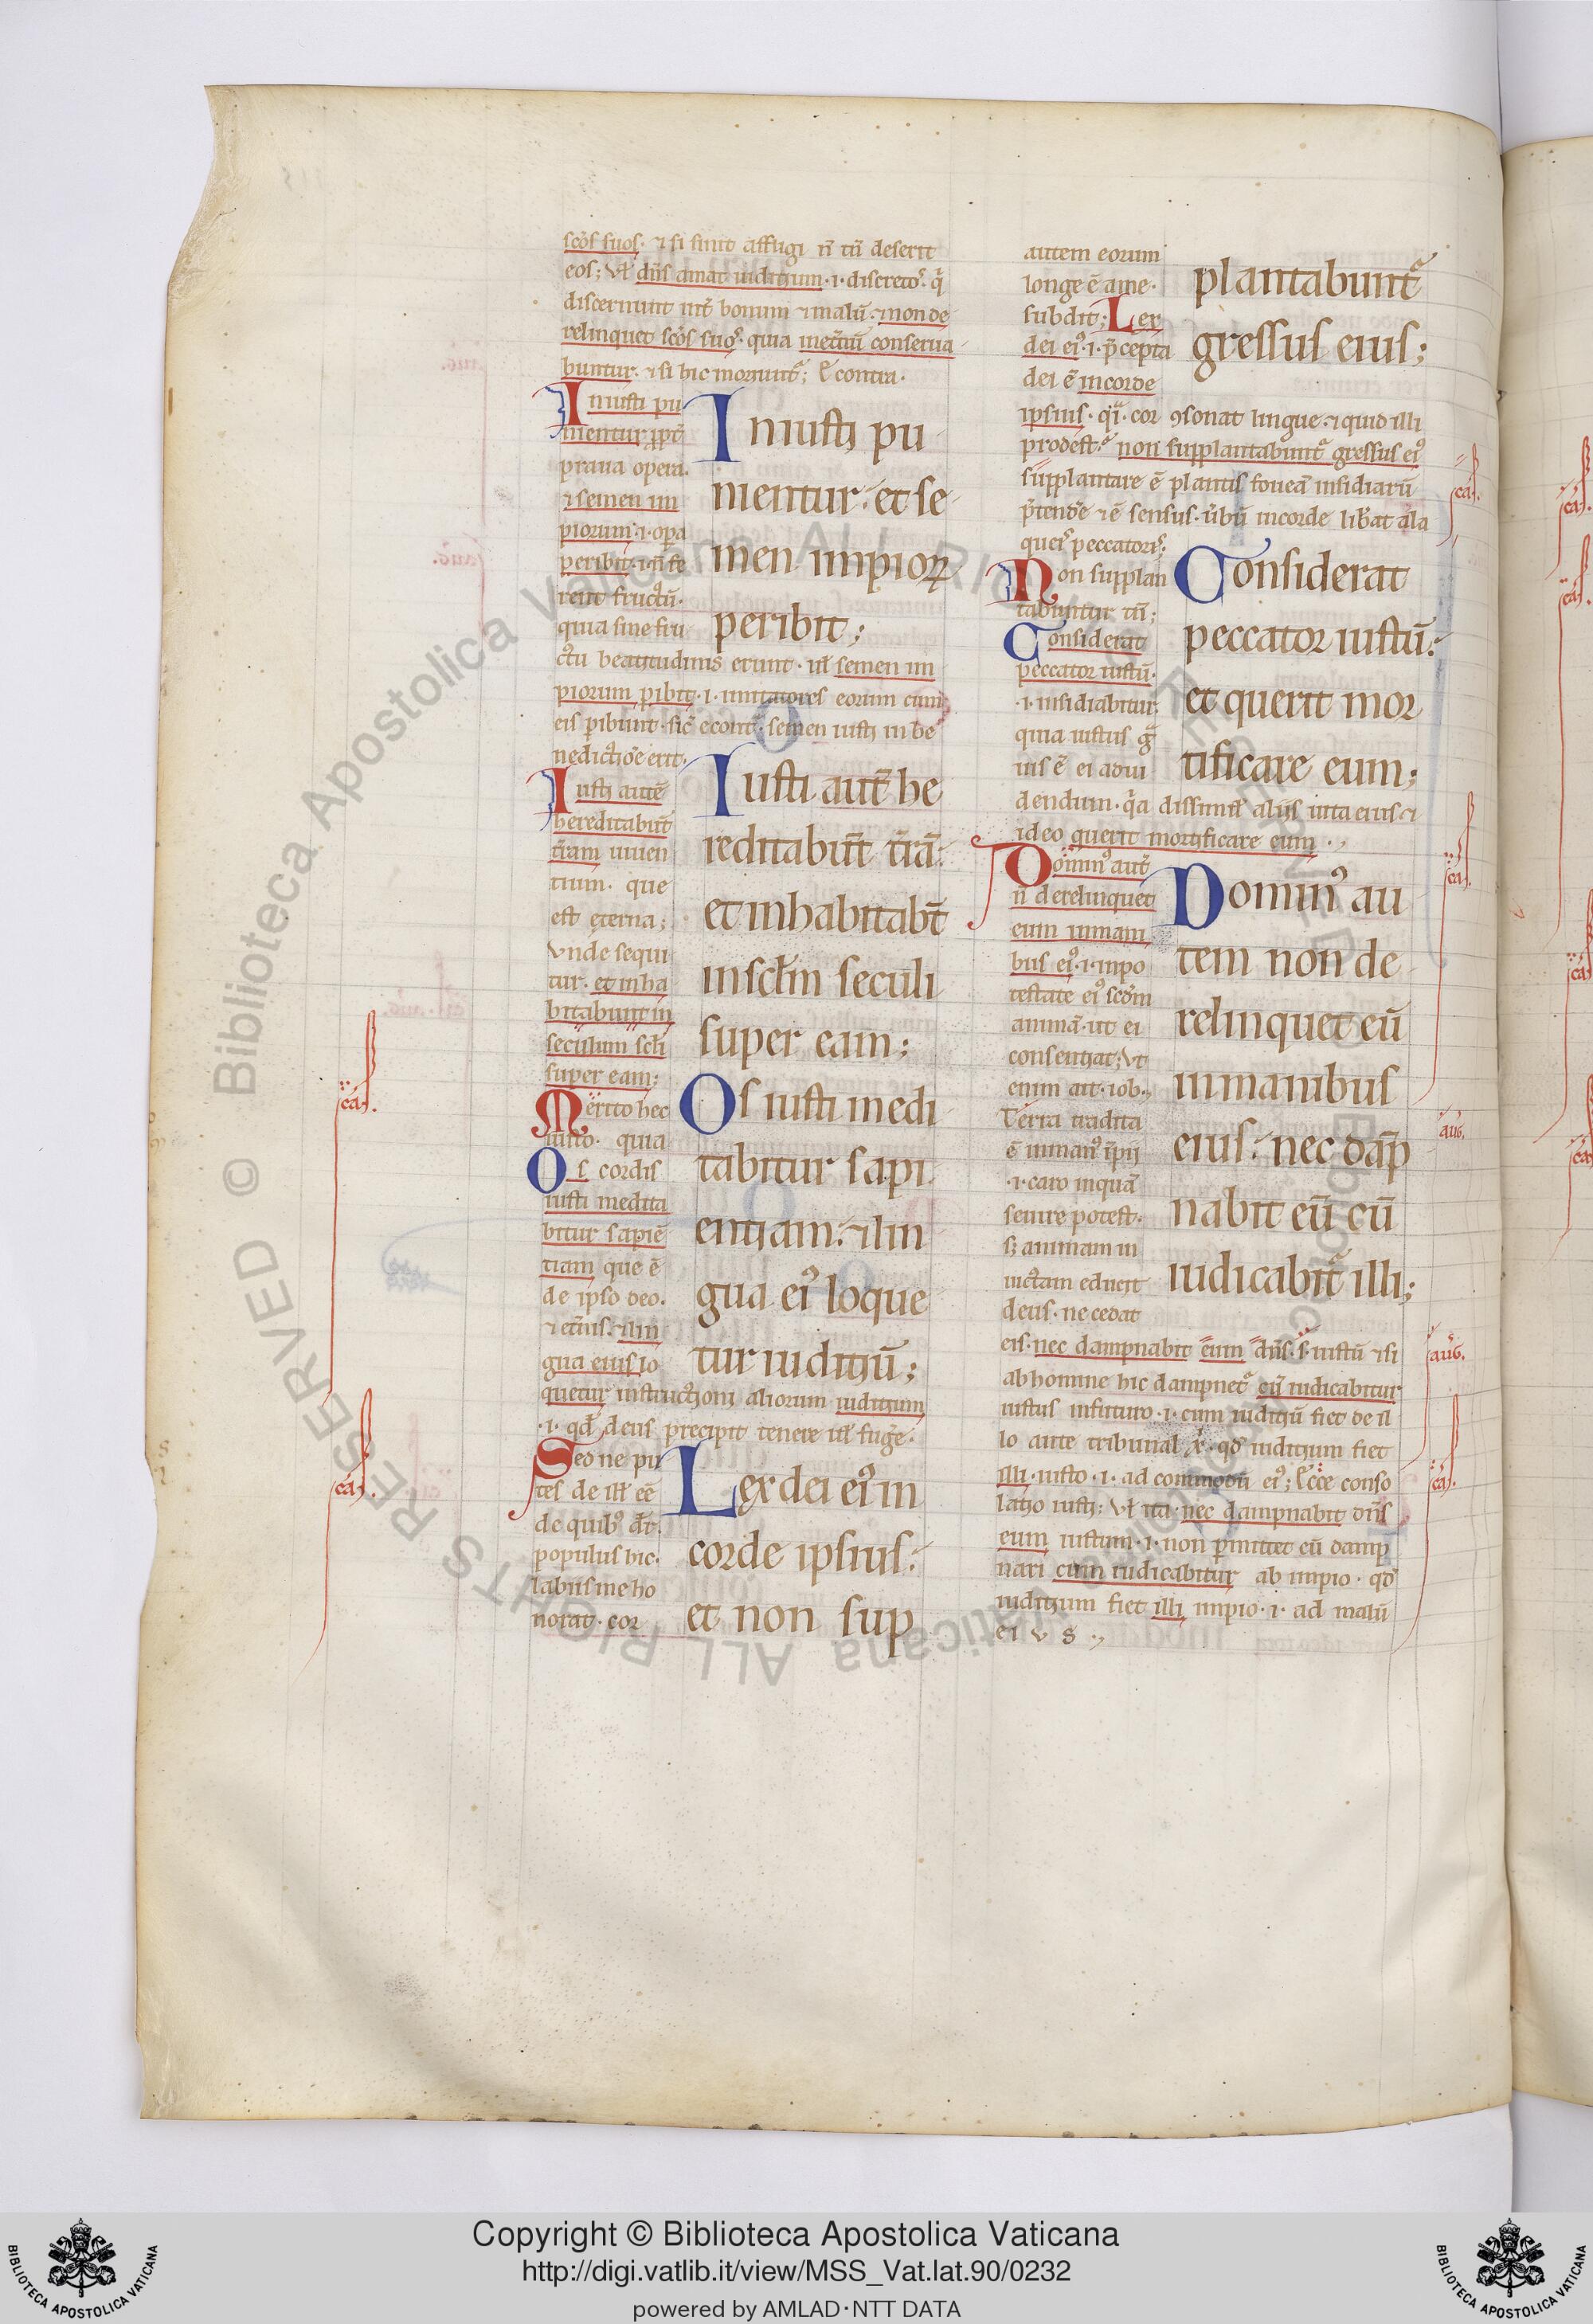 scōs suos. ⁊ si sinit affligi n̄ tn̄ deserit
eos; Vl̄ dn̄s amat iuditium .i. discretos. q̄
discernunt int̄ bonum ⁊ malū. ⁊ non de
relinquet scōs suos. quia inet̄nū conserua
buntur. ⁊ si hic moriunt᷑; contra.
Iniusti pu
nientur ꝓpt̄
praua opera.
⁊ semen im
piorum .i. opa
peribit .i. n̄ fe
rent fructū.
quia sine fru
ctu beatitudinis erunt. ul̄ semen im
piorum ꝑibit .i. imitatores eorum cum
eis ꝑibunt. sic econt̄. semen iusti in be
nedictiōe erit.
Iniusti pu
nientur. et se
men impioꝝ
peribit;
Iusti autē
hereditabūt
t̄ram uiuen
tium. que
est eterna;
Vnde sequi
tur. et inha
bitabunt in
seculum scl̄i
super eam;
Merito hec
iusto. quia
Os cordis
iusti medita
bitur sapiē
tiam que ē
de ipso deo.
⁊ et̄nis. ⁊ lin
gua eius lo
quetur instructioni aliorum iuditium
.i. qd̄ deus precipit tenere ul̄ fuge.
Iusti aut̄ he
reditabūt t̄rā.
et inhabitabt̄
in sclm̄ seculi
super eam;
Os iusti medi
tabitur sapi
entiam. ⁊ lin
gua eiꝰ loque
tur iuditiū;
Sed ne pu
tes de ill̄ eē
de quibꝰ dt̄.
populus hic.
labiis me ho
norat. cor
Lex dei eiꝰ in
corde ipsius.
et non sup
autem eorum
longe ē a me.
subdit; Lex
dei eiꝰ .i. p̄cepta
dei ē in corde
ipsius. qi. cor ꝯsonat lingue. ⁊ quid illi
prodest. non supplantabunt᷑ gressus eiꝰ
supplantare ē plantis foueā insidiarū
p̄tendēe ⁊ ē sensus. ūbū in corde lib̄at a la
queis peccatoris;
plantabunt᷑
gressus eius;
Non supplan
tabuntur tn̄;
Considerat
peccator iustū.
.i. insidiabitur.
quia iustus gͣ
uis ē ei ad ui
dendum. qa dissimil̄ aliis uita eius ⁊
ideo querit mortificare eum.
Considerat
peccator iustū.
et querit mor
tificare eum;
Dominꝰ aut̄
n̄ derelinquet
eum in mani
bus eiꝰ .i. in po
testate eiꝰ scdm̄
animā. ut ei
consentiat; Vt
enim ait. iob.
Terra tradita
ē in manꝰ īpii
.i. caro inquā
seuire potest.
sꝫ animam in
uictam educit
deus. ne cedat
eis. nec dampnabit eum dn̄s. s. iustū ⁊ si
ab homine hic dampnet᷑ cū iudicabitur
iustus in futuro .i. cum iuditiū fiet de il
lo ante tribunal xi. qd̄ iuditium fiet
illi. iusto .i. ad commodū eiꝰ; conso
latio iusti; Vl̄ ita nec dampnabit dn̄s
eum iustum .i. non ꝑmittet eū damp
nari cum iudicabitur ab impio. qd̄
iuditium fiet illi impio .i. ad malū
eius.
Dominꝰ au
tem non de
relinquet eū
in manibus
eius. nec dāp
nabit eū cū
iudicabit᷑ illi;
cas.
cas.
cas.
cas.
aug.
aug.
cas.
© Biblioteca Apostolica Vaticana ALL RIGHTS RESERVED
© Biblioteca Apostolica Vaticana ALL RIGHTS RESERVED
Copyright © Biblioteca Apostolica Vaticana
http://digi.vatlib.it/view/MSS_Vat.lat.90/0232
powered by AMLAD·NTT DATA
BIBLIOTECA APOSTOLICA VATICANA
BIBLIOTECA APOSTOLICA VATICANA